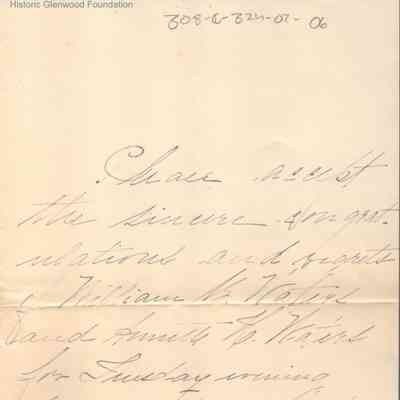 Historic Glenwood Foundation
308-6-324-01-06
Please accept
the sincere congrat-
ulations and regrets
William W. Waters
and Annette H. Waters
for Tuesday evening